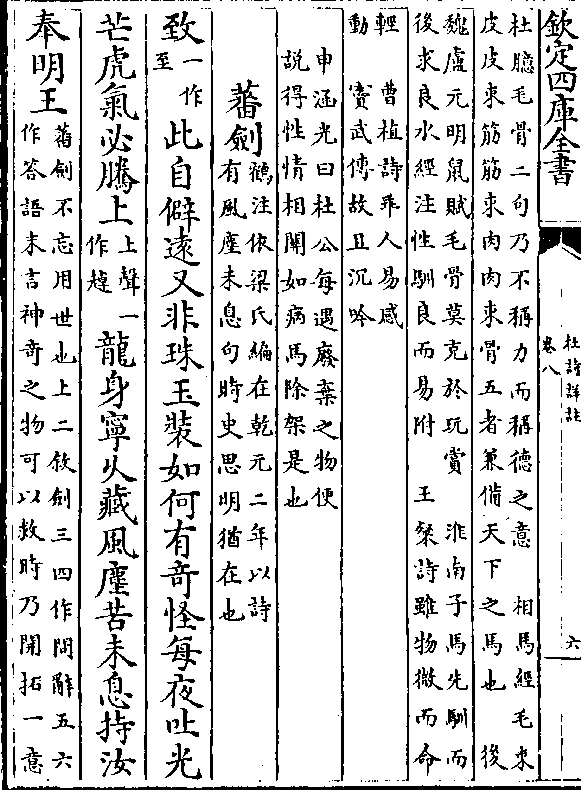 欽定四庫全書
杜詩詳註
卷八
六
杜臆毛骨二句乃不稱力而稱德之意　相馬經毛束
皮皮束筋筋束肉肉束骨五者兼備天下之馬也　後
魏盧元明鼠賦毛骨莫充於玩賞　淮南子馬先馴而
後求良水經注性馴良而易附　王粲詩雖物微而命
輕　曹植詩乖人易感
動　竇武傳故且沉吟
申涵光曰杜公每遇廢棄之物便
說得性情相關如病馬除架是也
蕃劍
鶴注依梁氏編在乾元二年以詩
有風塵未息句時史思明猶在也
致
一作
至
此自僻遠又非珠玉裝如何有奇怪每夜吐光
芒虎氣必騰上
上聲一
作趠
龍身寧久藏風塵苦未息持汝
奉明王
蕃劍不忘用世也上二敘劍三四作問辭五六
作答語末言神奇之物可以救時乃開拓一意